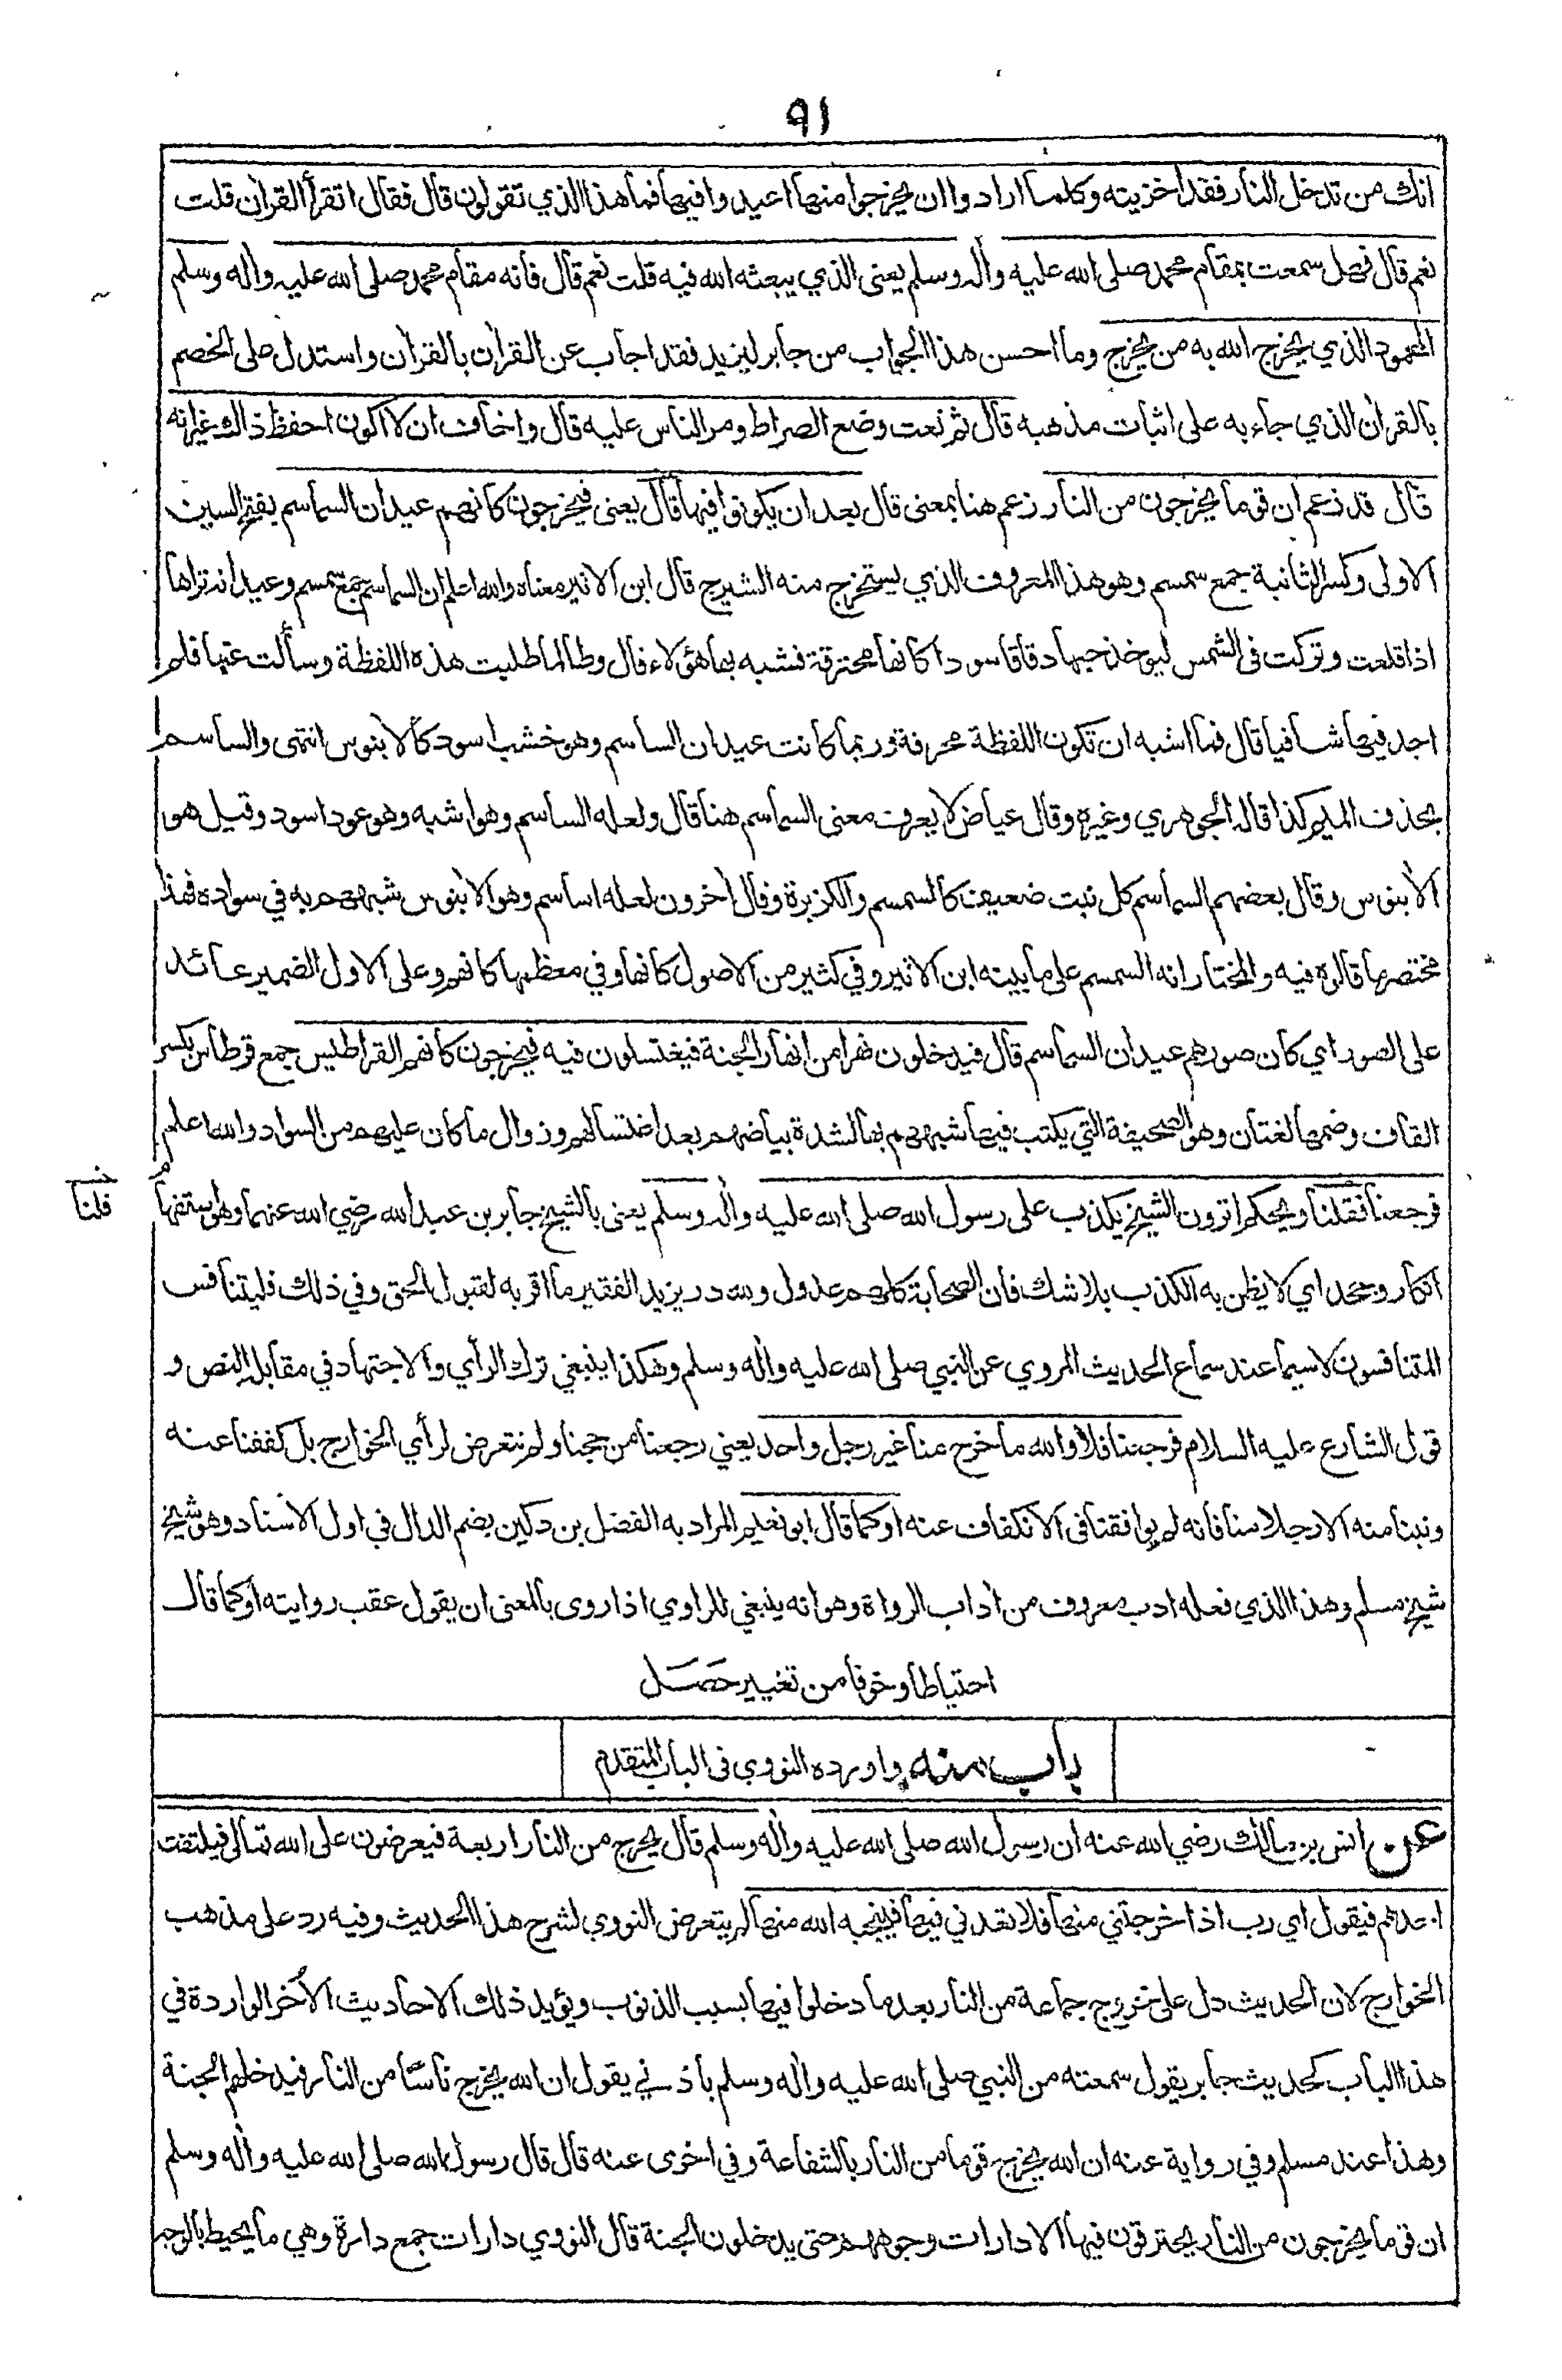 ٩١
انك من تدخل النار فقد اخزيته وكلما ارادوا ان يخرجوا منها اعيدوا فيها فما هذا الذي تقولون قال فقال اتقرأ القرآن قلت
نعم قال فهل سمعت بمقام محمد صلى الله عليه وآله وسلم يعنى الذي يبعثه الله فيه قلت نعم قال فانه مقام محمد صلى الله عليه وآله وسلم
المحمود الذي يخرج الله به من يخرج وما احسن هذا الجواب من جابر ليزيد فقد اجاب عن القرآن بالقرآن واستدل على الخصم
بالقرآن الذي جاء به على اثبات مذهبه قال ثم نعت وضع الصراط ومر الناس عليه قال واخاف ان لا اكون احفظ ذاك غير انه
قال قد زعم ان قوما يخرجون من النار زعم هنا بمعنى قال بعد ان يكونوا فيها قال يعنى فيخرجون كانهم عيدان السماسم بفتح السين
الاولى وكسر الثانية جمع سمسم وهو هذا المعروف الذي يستخرج منه الشيرج قال ابن الاثير معناه والله اعلم ان السماسم جمع سمسم وعيدانه تراها
اذا قلعت وتركت فى الشمس ليوخذ حبها دقاقا سودا كانها محترقة فشبه بها هؤلاء قال وطالما طلبت هذه اللفظة وسألت عنها فلم
اجد فيها شافيا قال فما اشبه ان تكون اللفظة محرفة وربما كانت عيدان الساسم وهو خشب اسود كالآبنوس انتهى والساسم
بحذف الميم كذا قاله الجوهري وغيره وقال عياض لا يعرف معنى السماسم هنا قال ولعله الساسم وهو اشبه وهو عود اسود وقيل هو
الآبنوس وقال بعضهم السماسم كل نبت ضعيف كالسمسم والكزبرة وقال آخرون لعله اساسم وهو الآبنوس شبههم به في سواده فهذا
مختصر ما قالوه فيه والمختار انه السمسم على ما بينه ابن الاثير وفي كثير من الاصول كانها وفي معظمها كانهم وعلى الاول الضمير عائد
على الصور اي كان صورهم عيدان السماسم قال فيدخلون نهرا من انهار الجنة فيغتسلون فيه فيخرجون كانهم القراطيس جمع قرطاس بكسر
القاف وضمها لغتان وهو الصحيفة التي يكتب فيها شبههم بها لشدة بياضهم بعد اغتسالهم وزوال ما كان عليهم من السواد والله اعلم
فرجعنا فقلنا ويحكم اترون الشيخ يكذب على رسول الله صلى الله عليه وآله وسلم يعنى بالشيخ جابر بن عبد الله رضي الله عنهما وهو استفهام
قلنا
انكار وجحد اي لا يظن به الكذب بلا شك فان الصحابة كلهم عدول ولله در يزيد الفقير ما اقربه لقبول الحق وفي ذلك فليتنافس
المتنافسون لا سيما عند سماع الحديث المروي عن النبي صلى الله عليه وآله وسلم وهكذا ينبغي ترك الرأي والاجتهاد في مقابلة النص و
قول الشارع عليه السلام فرجعنا فلا والله ما خرج منا غير رجل واحد يعني رجعنا من حجنا ولم نتعرض لرأي الخوارج بل كففنا عنه
وتبنا منه الا رجلا منا فانه لم يوافقنا فى الانكفاف عنه او كما قال ابو نعيم المراد به الفضل بن دكين بضم الدال في اول الاسناد وهو شيخ
شيخ مسلم وهذا الذي فعله ادب معروف من آداب الرواة وهو انه ينبغي للراوي اذا روى بالمعنى ان يقول عقب روايته او كما قال
احتياطا وخوفا من تغيير حصل
باب منه واورده النووي فى الباب المتقدم
عن انس بن مالك رضي الله عنه ان رسول الله صلى الله عليه وآله وسلم قال يخرج من النار اربعة فيعرضون على الله تعالى فيلتفت
احدهم فيقول اي رب اذ اخرجتني منها فلا تعدني فيها فينجيه الله منها لم يتعرض النووي لشرح هذا الحديث وفيه رد على مذهب
الخوارج لان الحديث دل على خروج جماعة من النار بعد ما دخلوا فيها بسبب الذنوب ويؤيد ذلك الاحاديث الأخر الواردة في
هذا الباب كحديث جابر يقول سمعته من النبي صلى الله عليه وآله وسلم باذني يقول ان الله يخرج ناسا من النار فيدخلهم الجنة
وهذا عند مسلم وفي رواية عنه ان الله يخرج قوما من النار بالشفاعة وفي اخرى عنه قال قال رسول الله صلى الله عليه وآله وسلم
ان قوما يخرجون من النار يحترقون فيها الا دارات وجوههم حتى يدخلون الجنة قال النووي دارات جمع دارة وهي ما يحيط بالوجه